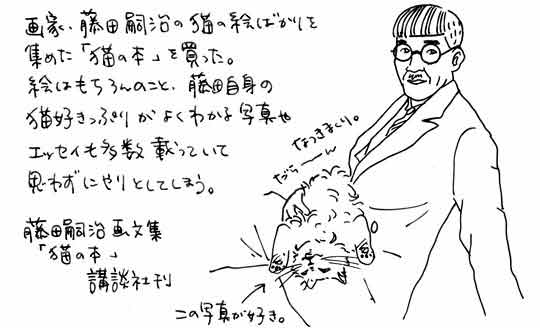 画家、藤田嗣治の猫の絵ばかりを
集めた「猫の本」を買った。
絵はもちろんのこと、藤田自身の
猫好きっぷりがよくわかる写真や
エッセイも多数載っていて
思わずにやりとしてしまう。
藤田嗣治画文集
「猫の本」
講談社刊
なつきまくり。
だらーーん
この写真が好き。